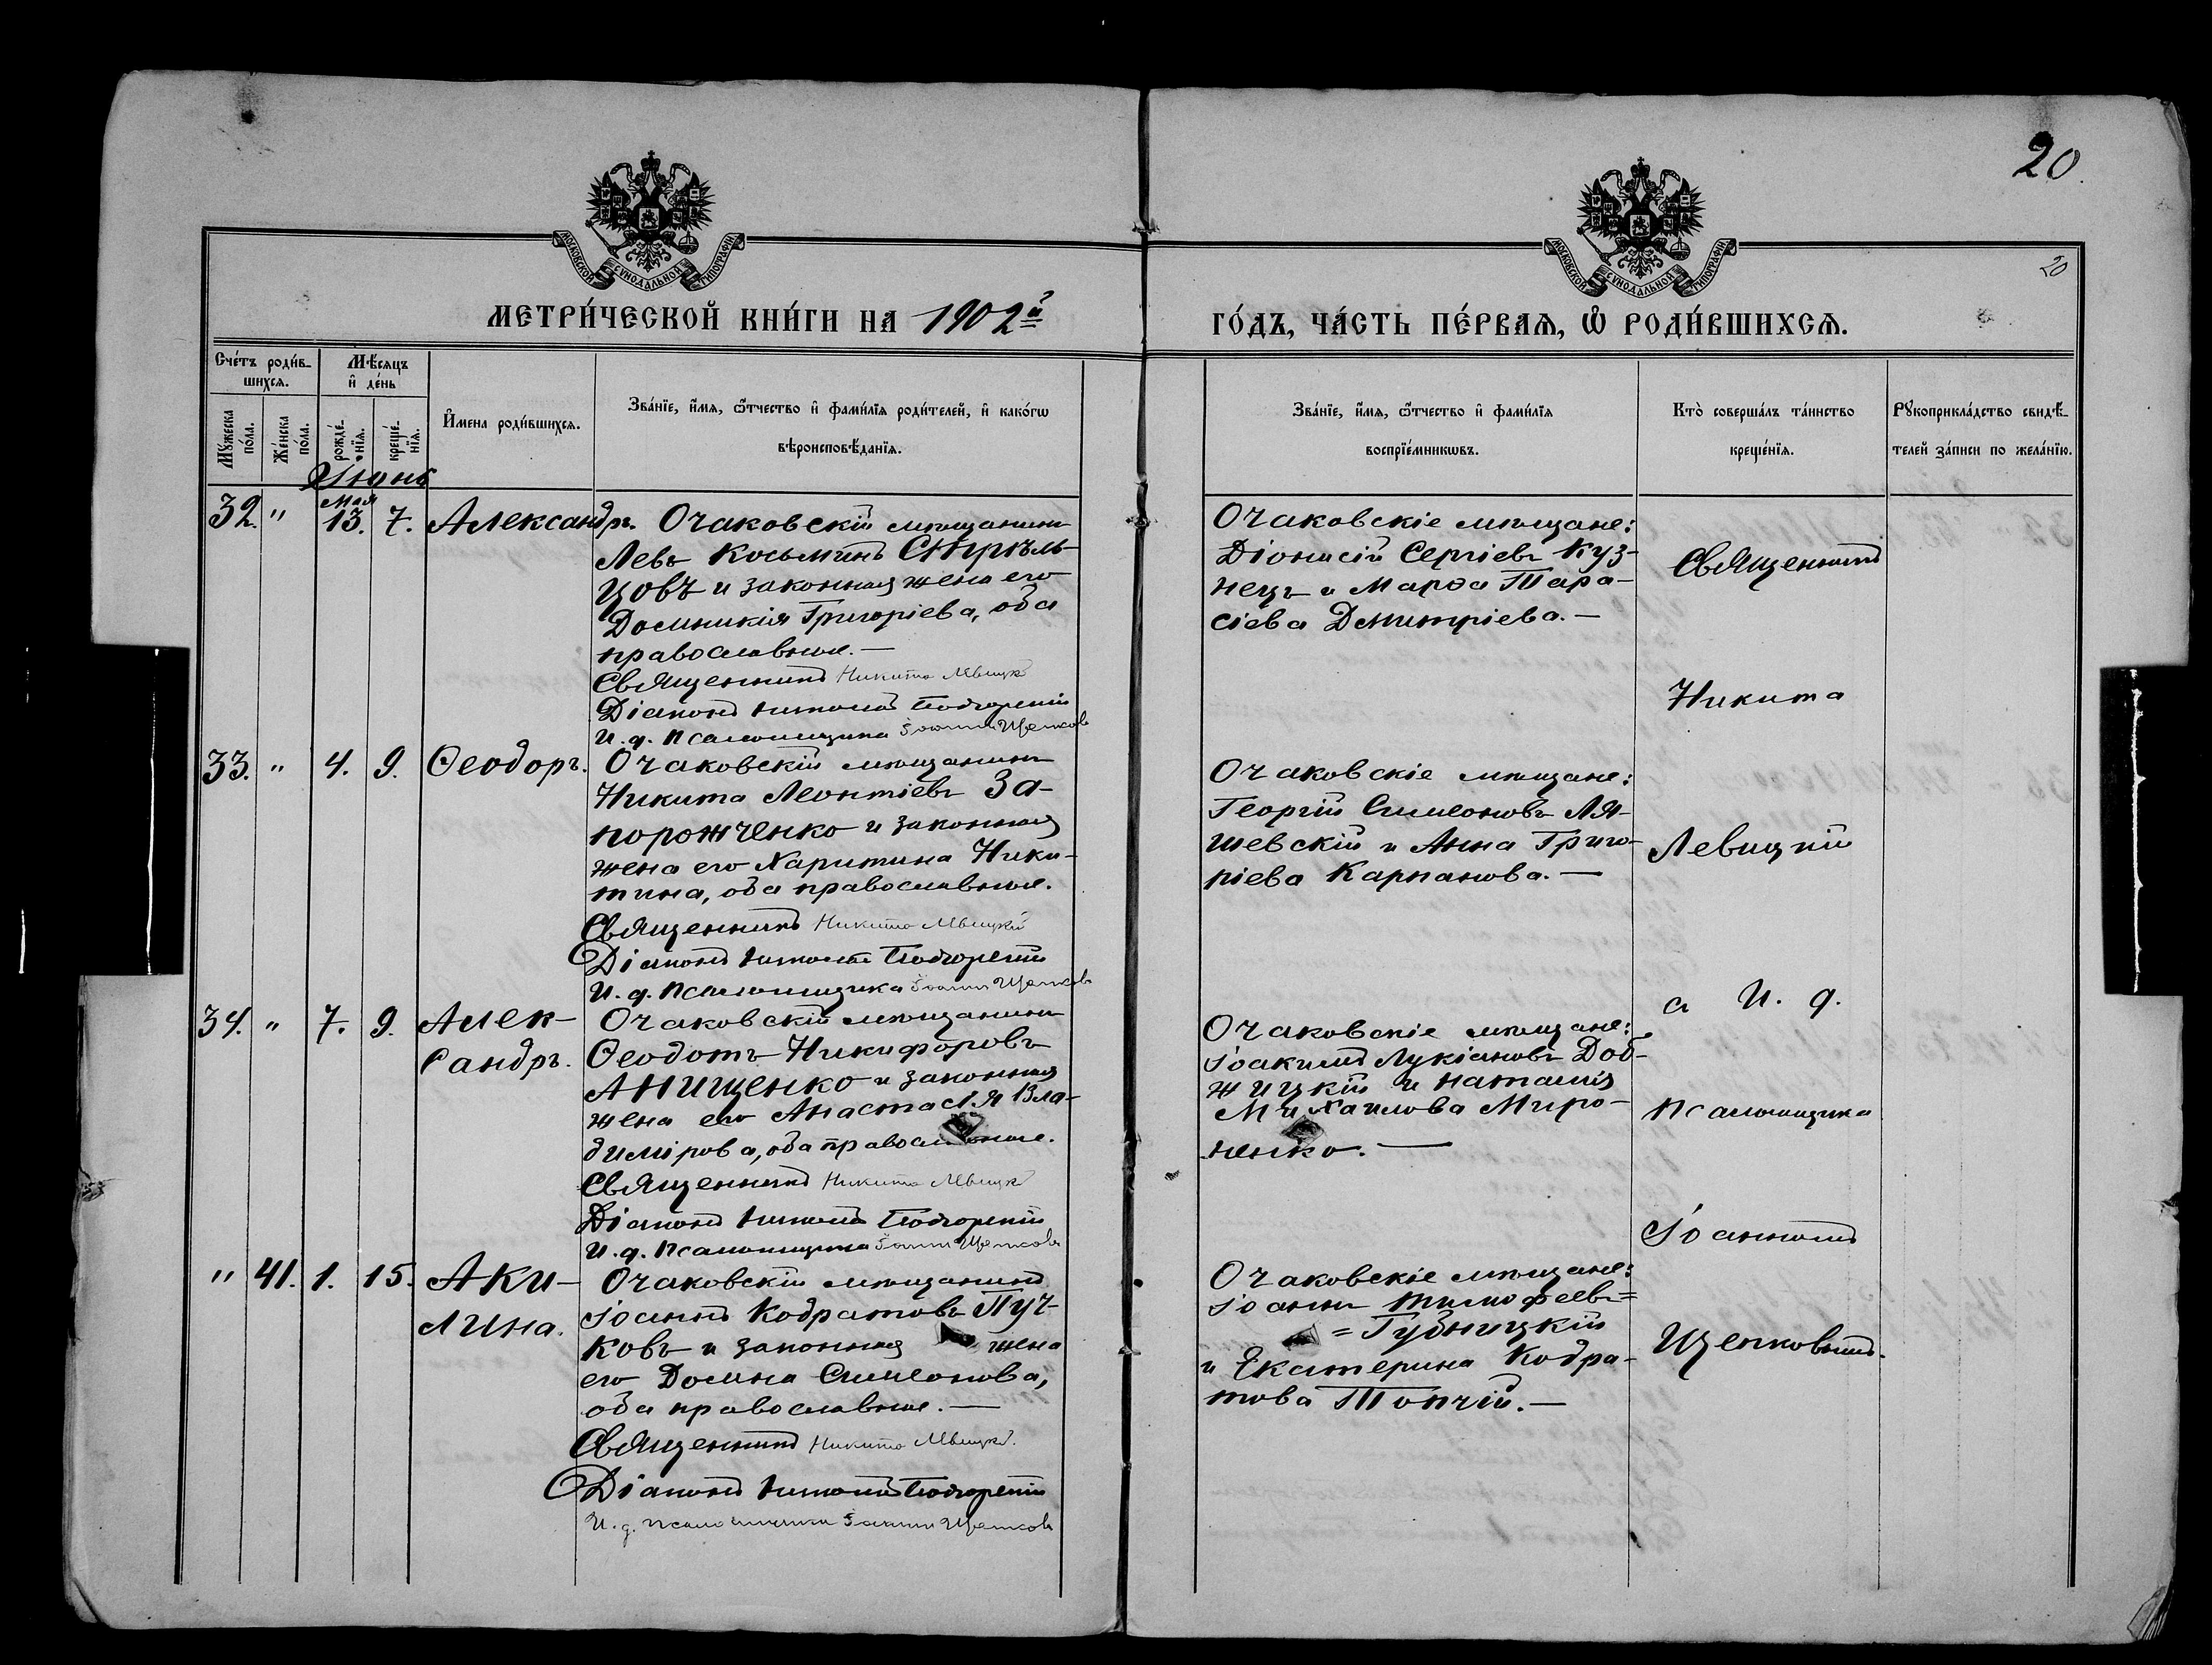 20.
20
МОСКОВСКОЙ СѴНОДАЛЬНОЙ ТИПОГРАФІИ
МОСКОВСКОЙ СѴНОДАЛЬНОЙ ТИПОГРАФІИ
МЕТРИ́ЧЕСКОЙ КНИ́ГИ НА 1902й
ГО́ДЪ, ЧА́СТЬ ПЕ́РВАѦ, Ѡ҆ РОДИ́ВШИХСѦ.
Сче́тъ роди́в-
шихсѧ.
Мѣ́сѧцъ
и҆ де́нь
Мꙋ́жеска по́ла.
Же́нска по́ла.
рожде́-нїѧ.
креще́-нїѧ.
И҆́мена роди́вшихсѧ.
Зва́нїе, и҆́мѧ, ѻ҆́тчество и҆ фами́лїѧ роди́телей, и҆ како́гѡ
вѣроисповѣ́данїѧ.
Зва́нїе, и҆́мѧ, ѻ҆́тчество и҆ фами́лїѧ
воспрїе́мникѡвъ.
Кто̀ соверша́лъ та́инство
креще́нїѧ.
Рꙋкоприкла́дство свидѣ́-
телей за́писи по жела́нїю.
Іюнь
Мая
32. " 13. 7. Александръ.
Очаковскій мѣщанинъ
Левъ Косьминъ Стрѣль-
цовъ и законная жена его
Домникія Григоріева, оба
православные. —
Священникъ Никита Левицкій
Діаконъ Подгорскій
И. д. псаломщика Іоаннъ Щепковъ
Очаковскіе мѣщане:
Діонисій Сергіевъ Куз-
нецъ и Марѳа Тара-
сіева Дмитріева. —
33. " 4. 9. Ѳеодоръ.
Очаковскій мѣщанинъ
Никита Леонтіевъ За-
порожченко и законная
жена его Харитина Ники-
тина, оба православные.
Священникъ Никита Левицкій
Діаконъ Подгорскій
И. д. псаломщика Іоаннъ Щепковъ
Очаковскіе мѣщане:
Георгій Симеоновъ Ля-
шевскій и Анна Григо-
ріева Карпанова. —
34. " 7. 9. Алек-
сандръ.
Очаковскій мѣщанинъ
Ѳеодотъ Никифоровъ
Анищенко и законная
жена его Анастасія Вла-
димірова, оба православные.
Священникъ Никита Левицкій
Діаконъ Подгорскій
И. д. псаломщика Іоаннъ Щепковъ
Очаковскіе мѣщане:
Іоакимъ Лукіановъ Доб-
жицкій и Наталія
Михаилова Миро-
ненко. —
" 41. 1. 15. Аки-
лина.
Очаковскій мѣщанинъ
Іоаннъ Кодратовъ Пуч-
ковъ и законная жена
его Домна Симеонова,
оба православные. —
Священникъ Никита Левицкій.
Діаконъ Подгорскій
И. д. псаломщика Іоаннъ Щепковъ
Очаковскіе мѣщане:
Іоаннъ Тимофеевъ=
=Губницкій
и Екатерина Кодра-
това Топчій. —
Священникъ
Никита
Левицкій
с И. д.
псаломщика
Іоанномъ
Щепковымъ.